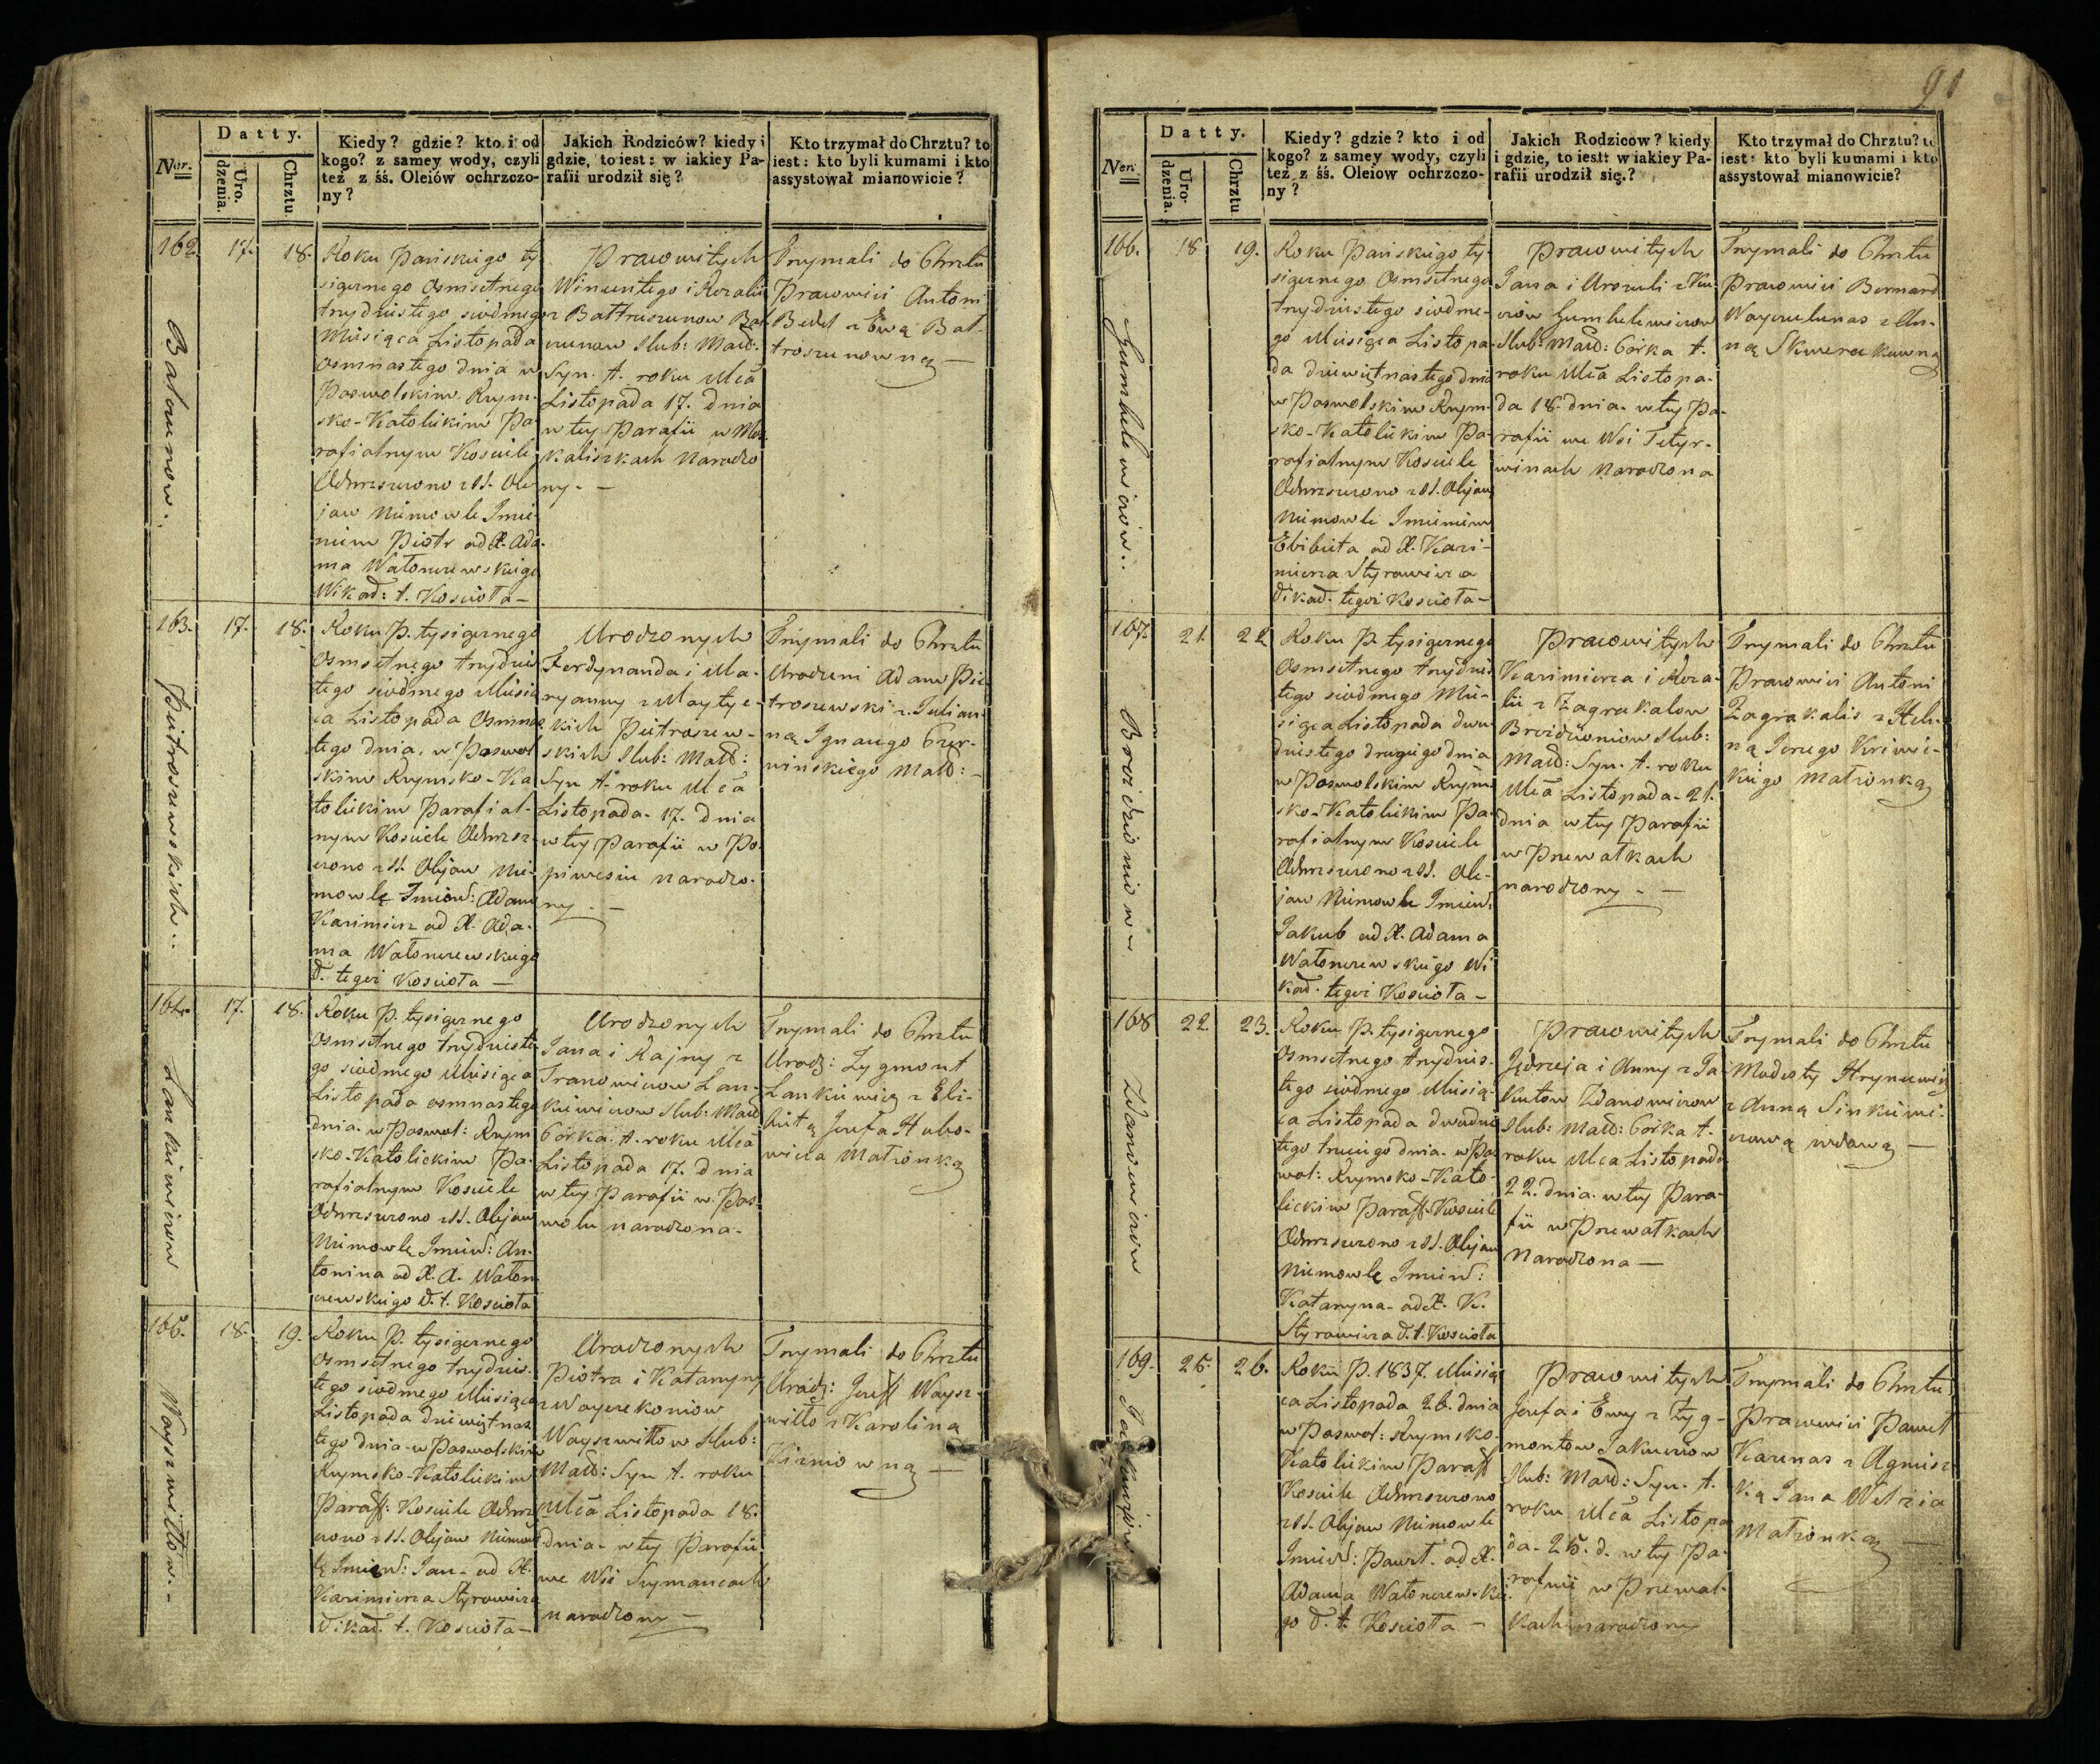 91
Datty.
Nor.
Uro.
dzenia.
Chrztu.
Kiedy? gdzie? kto i od
kogo? z samey wody, czyli
też z śś. Oleiów ochrzczo-
ny?
Jakich Rodziców? kiedy i
gdzie, to iest: w iakiey Pa-
rafii urodził się?
Kto trzymał do Chrztu? to
iest: kto byli kumami i kto
assystował mianowicie?
162. 17. 18.
Roku Pańskiego ty-
siącznego Osmsetnego
trzydziestego siodmego
Miesiąca Listopada
Osmnastego dnia w
Poswolskim Rzym-
sko-Katolickim Pa-
rafialnym Kosciele
Ochrzszczono z SS. Ole-
jow Niemowle Imie-
niem Piotr od X. Ada-
ma Wałonczewskiego
Wikad: t. Kościoła —
Prawowitych
Wincentego i Rozalii
z Battruszunow
Slub: Małż:
Syn. t. roku Mca
Listopada 17. dnia
w tey Parafii w
kaliszkach Narodzo
ny. —
Trzymali do Chrztu
Prawowici Antoni
z Ewą Bat-
troszunowną —
163. 17. 18.
Pietroszewskich:
Roku P. tysiącznego
Osmsetnego trzydzies
tego siodmego Miesią
ca Listopada Osmnas
tego dnia, w Poswol
skim Rzymsko-Ka
tolickim Parafial-
nym Kosciele Ochrzsz-
czono z SS. Olejow Nie-
mowlę Imien: Adam
Kazimierz od X. Ada-
ma Wałonczewskiego
W. tegoż Kościoła —
Urodzonych
Ferdynanda i Ma-
ryanny z
kich Pietroszew-
skich Slub: Małż:
Syn t. roku Mca
Listopada. 17. dnia
w tey Parafii w Po
piwesiu narodzo-
ny. —
Trzymali do Chrztu
Urodzeni Adam Pie
troszewski z Julian-
ną Ignacego Czer-
winskiego Małż: —
164. 17. 18.
Lankiewiczow
Roku P. tysiącznego
Osmsetnego trzydzieste
go siodmego Miesiąca
Listopada osmnastego
dnia. w Poswol: Rzym
sko-Katolickim Pa-
rafialnym Kosciele
Ochrzszczono z SS. Olejow
Niemowlę Imien: An-
tonina od X. A. Wałon
czewskiego W. t. Kościoła
Urodzonych
Jana i Rajny z
Tranowiczow Lan-
kiewiczow Slub: Małż
Córka. t. roku Mca
Listopada 17. dnia
w tey Parafii w Pos-
wolu narodzona.
Trzymali do Chrztu
Urodz: Zygmont
Lankiewicz z Elż-
bietą Jozefa Hubo-
wicza Małżonką
165. 18. 19.
Wayszwiłłow. —
Roku P. tysiącznego
Osmsetnego trzydzies-
tego siodmego Miesiąca
Listopada dziewiętnas
tego dnia w Poswolskim
Rzymsko-Katolickim
Paraff: Kosciele Ochrzsz
czono z SS. Olejow Niemow
lę Imien: Jan. od X.
Kazimierza Styrowicza
Wikad. t. Kościoła —
Urodzonych
Piotra i Katarzyny
z
Wayszwiłłow Slub:
Małż: Syn t. roku
Mca Listopada 18.
dnia. w tey Parafii
we Wsi Szymancach
narodzony —
Trzymali do Chrztu
Urodz: Jozeff Waysz-
wiłło z Karoliną
—
Datty.
Ner.
Uro-
dzenia.
Chrztu
Kiedy? gdzie? kto i od
kogo? z samey wody, czyli
też z śś. Oleiow ochrzczo-
ny?
Jakich Rodziców? kiedy
i gdzie, to iest: w iakiey Pa-
rafii urodził się?
Kto trzymał do Chrztu? to
iest: kto byli kumami i kto
assystował mianowicie?
166. 18 19.
Gumbelewiczow:
Roku Pańskiego ty-
siącznego Osmsetnego
trzydziestego siodme-
go Miesiąca Listopa-
da dziewiętnastego dnia
w Poswolskim Rzym-
sko-Katolickim Pa-
rafialnym Kosciele
Ochrzszczono z SS. Olejow
Niemowle Imieniem
Elżbieta od X. Kazi-
mierza Styrowicza
Wikad. tegoż Kościoła —
Prawowitych
Jana i Urszuli z
Gumbelewiczow
Slub: Małż: Córka t.
roku Mca Listopa-
da 18. dnia. w tey Pa-
rafii we Wsi Tetyr-
winach Narodzona
Trzymali do Chrztu
Prawowici Bernard
z An-
ną
167. 21. 22
Broidzionow
Roku P. tysiącznego
Osmsetnego trzydzies
tego siodmego Mie-
siąca Listopada dwu-
dziestego drugiego dnia
w Poswolskim Rzym-
sko-Katolickim Pa-
rafialnym Kosciele
Ochrzszczono z SS. Ole-
jow Niemowle Imien:
Jakub od X. Adama
Wałonczewskiego Wi
kad. tegoż Kościoła —
Prawowitych
Kazimierza i Roza-
lii z Zagrakalow
Broidzioniow Slub:
Małż: Syn. t. roku
Mca Listopada. 21.
dnia w tey Parafii
w Przewałkach
narodzony. —
Trzymali do Chrztu
Prawowici Antoni
Zagrakalis z Hele-
ną Jerzego Kriwic-
kiego Małżonką
168 22. 23.
Zdanowiczow
Roku P. tysiącznego
Osmsetnego trzydzies-
tego siodmego Miesią-
ca Listopada dwudzies
tego trzeciego dnia. w Pos
wol: Rzymsko-Kato-
lickim Paraff. Kosciele
Ochrzszczono z SS. Olejow
Niemowlę Imien:
Katarzyna. od X. K.
Styrowicza W. t. Kościoła
Prawowitych
Jędrzeja i Anny z Ja
kutow Zdanowiczow
Slub: Małż: Córka t.
roku Mca Listopada
22. dnia. w tey Para-
fii w Przewałkach
Narodzona —
Trzymali do Chrztu
Modesty Hryncewicz
z Anną Sinkiewi-
czową wdową —
169. 25. 26.
Roku P. 1837. Miesią
ca Listopada 26. dnia
w Poswol: Rzymsko-
Katolickim Paraff
Kosciele Ochrzszczono
z SS. Olejow Niemowle
Imien: Paweł. od X.
Adama Wałonczewskie
go W. t. Kościoła —
Prawowitych
Jozefa i Ewy z Zyg-
montow Jakuczow
Slub: Małż: Syn. t.
roku Mca Listopa
da. 25. d. w tey Pa-
rafii w Przewał-
kach narodzony
Trzymali do Chrztu
Prawowici Paweł
Karenas z Agniesz
ką Jana
Małżonką —